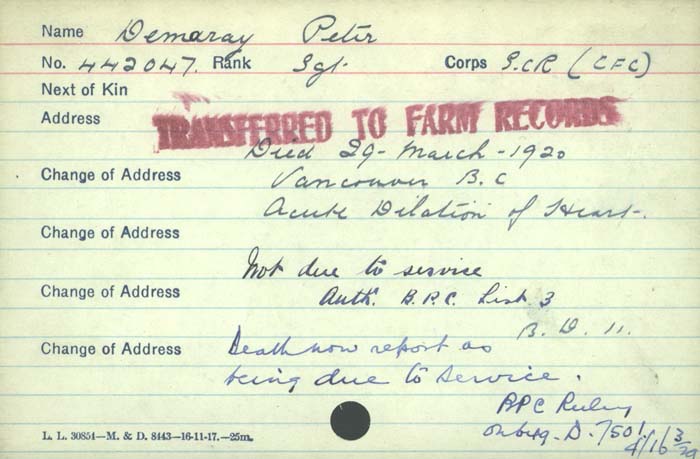 Name Demaray Peter
No. 442047. Rank Sgt. Corps S.C.R (CFC)
Next of Kin
Address TRANSFERRED TO FARM RECORDS
Died 29-March-1920
Change of Address Vancouver B.C
Acute Dilation of Heart.
Change of Address
Not due to service
Change of Address Auth. B.P.C. List 3
B. D. 11.
Change of Address Death now report as
being due to service.
BPC Ruling
L. L. 30854—M. & D. 8443—16-11-17.—25m.
D. 7501